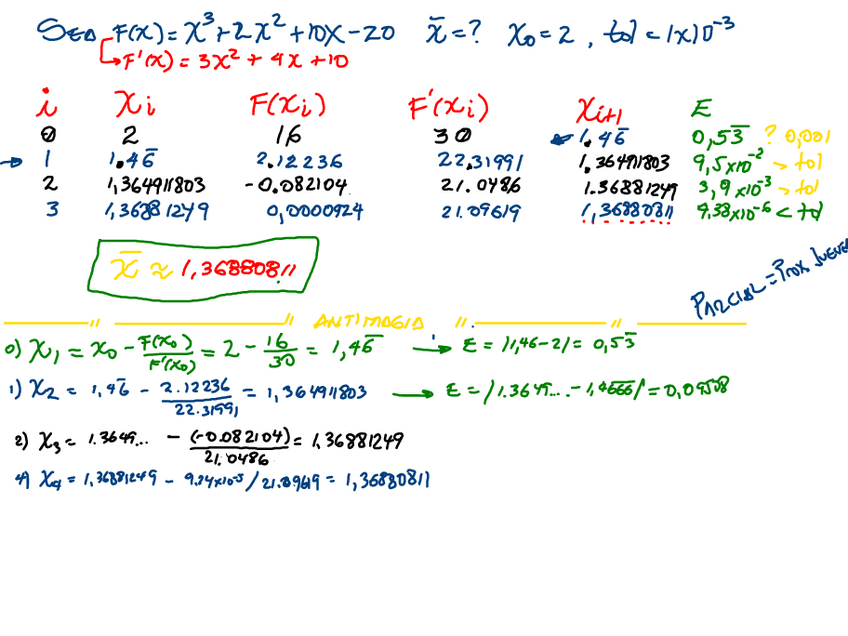 SEA F(x) = x³ + 2x² + 10x - 20   x̄ = ?   x₀ = 2 , tol = 1x10⁻³
↳ F'(x) = 3x² + 4x + 10
i   xi   F(xi)   F'(xi)   xi+1   E
0   2   16   30   1.46̄   0,53̄   ? 0,001
→ 1   1.46̄   2.12236   22.31991   1.364911803   9,5x10⁻² > tol
2   1,364911803   -0.082104   21.0486   1.36881249   3,9x10⁻³ > tol
3   1,36881249   0,0000924   21.09619   1,36880811   4.38x10⁻⁶ < tol
x̄ ≈ 1,36880811
PARCIAL = PROX JUEVES
ANTIMAGIA
0) x₁ = x₀ - F(x₀)/F'(x₀) = 2 - 16/30 = 1,46̄ → E = |1,46-2| = 0,53̄
1) x₂ = 1,46 - 2.12236/22.31991 = 1,364911803 → E = |1.3649... - 1,4666| = 0,09508
2) x₃ = 1.3649... - (-0.082104)/21.0486 = 1,36881249
4) x₄ = 1,36881249 - 9.24x10⁻⁵ / 21.09619 = 1,36880811